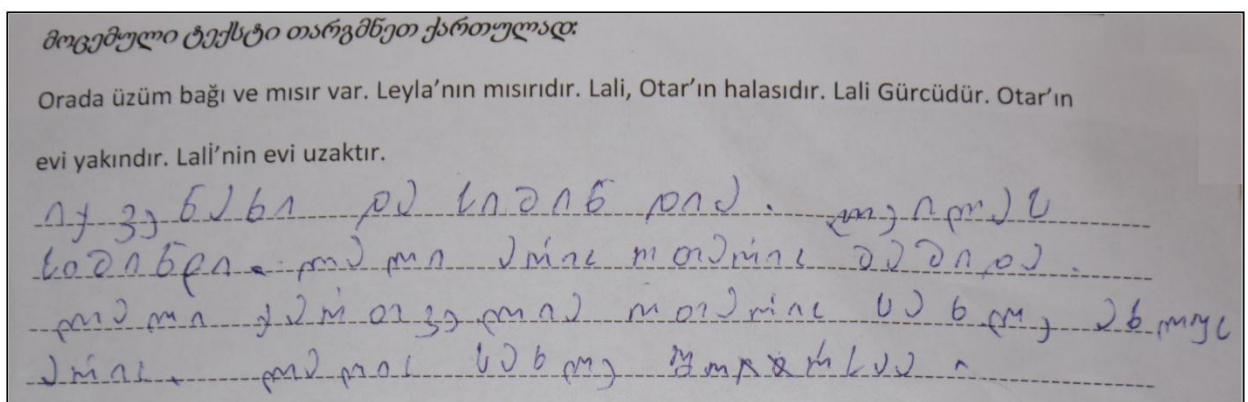 მოცემული ტექსტი თარგმნეთ ქართულად:
Orada üzüm bağı ve mısır var. Leyla’nın mısırıdır. Lali, Otar’ın halasıdır. Lali Gürcüdür. Otar’ın
evi yakındır. Lalİ’nin evi uzaktır.
იქ ვენახი და სიმინ დია. ლეილას
სიმინდი. ლალი არის ოთარის მამიდა.
ლალი ქართველია ოთარის სახლე ახლოს
არის. ლალის სახლე